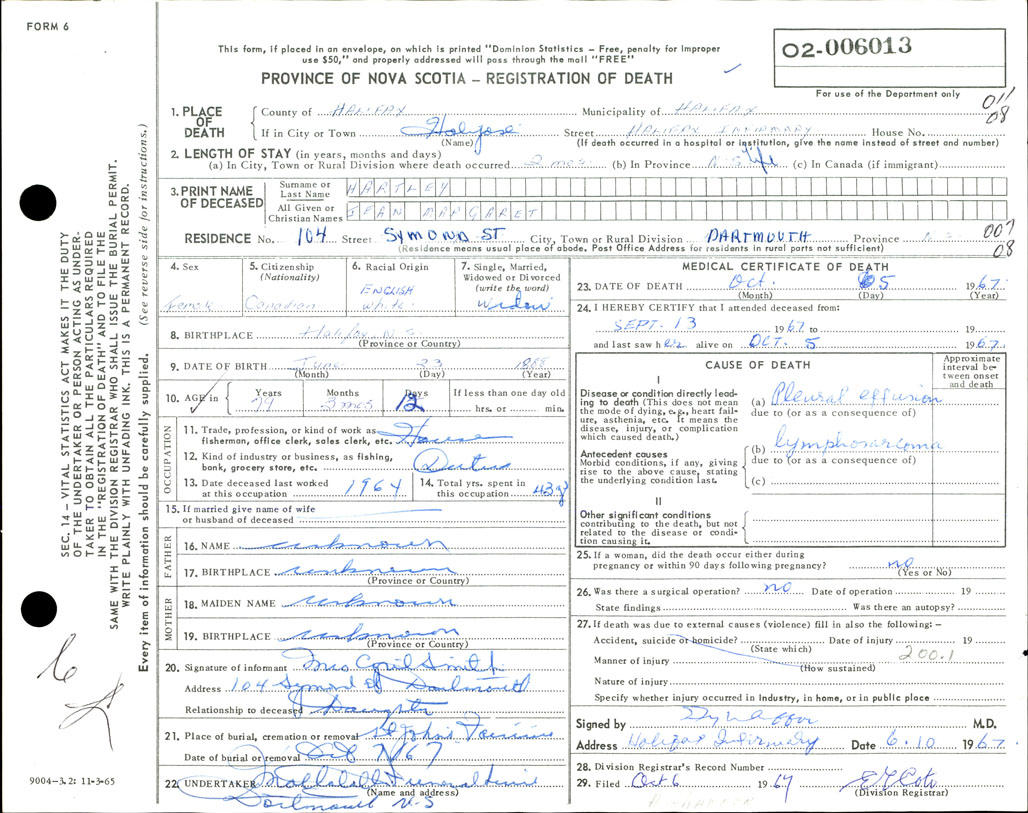 FORM 6
This form, if placed in an envelope, on which is printed "Dominion Statistics – Free, penalty for improper
use $50," and properly addressed will pass through the mail "FREE"
PROVINCE OF NOVA SCOTIA – REGISTRATION OF DEATH
02-006013
For use of the Department only
011
08
1. PLACE OF DEATH
County of HALIFAX Municipality of HALIFAX
If in City or Town Halifax Street HALIFAX INFIRMARY House No.
(Name) (If death occurred in a hospital or institution, give the name instead of street and number)
2. LENGTH OF STAY (in years, months and days)
(a) In City, Town or Rural Division where death occurred 2 mos (b) In Province N.S. life (c) In Canada (if immigrant)
3. PRINT NAME OF DECEASED
Surname or Last Name HARTLEY
All Given or Christian Names JEAN MARGARET
RESIDENCE No. 104 Street SYMOND ST City, Town or Rural Division DARTMOUTH Province N.S.
007
08
(Residence means usual place of abode. Post Office Address for residents in rural parts not sufficient)
4. Sex Female
5. Citizenship (Nationality) Canadian
6. Racial Origin ENGLISH White
7. Single, Married, Widowed or Divorced (write the word) Widow
8. BIRTHPLACE Halifax N.S.
(Province or Country)
9. DATE OF BIRTH June 23 1888
(Month) (Day) (Year)
10. AGE in Years Months 3 mos Days 12 If less than one day old
hrs. or min.
OCCUPATION
11. Trade, profession, or kind of work as fisherman, office clerk, sales clerk, etc. House
12. Kind of industry or business, as fishing, bank, grocery store, etc. Duties
13. Date deceased last worked at this occupation 1964
14. Total yrs. spent in this occupation 43
15. If married give name of wife or husband of deceased
FATHER
16. NAME unknown
17. BIRTHPLACE unknown
(Province or Country)
MOTHER
18. MAIDEN NAME unknown
19. BIRTHPLACE unknown
(Province or Country)
20. Signature of informant Mrs Cyril Smith
Address 104 Symond St Dartmouth
Relationship to deceased Daughter
21. Place of burial, cremation or removal St Johns
Date of burial or removal Oct 7/67
22. UNDERTAKER Funeral Home
(Name and address)
Dartmouth N.S
MEDICAL CERTIFICATE OF DEATH
23. DATE OF DEATH Oct. 05 1967
(Month) (Day) (Year)
24. I HEREBY CERTIFY that I attended deceased from:
SEPT. 13 1967 to 19
and last saw her alive on OCT. 5 1967
CAUSE OF DEATH
Approximate interval between onset and death
I
Disease or condition directly leading to death (This does not mean the mode of dying, e.g., heart failure, asthenia, etc. It means the disease, injury, or complication which caused death.)
(a) Pleural effusion
due to (or as a consequence of)
Antecedent causes
Morbid conditions, if any, giving rise to the above cause, stating the underlying condition last.
(b) lymphosarcoma
due to (or as a consequence of)
(c)
II
Other significant conditions contributing to the death, but not related to the disease or condition causing it.
25. If a woman, did the death occur either during pregnancy or within 90 days following pregnancy? no
(Yes or No)
26. Was there a surgical operation? no Date of operation 19
State findings Was there an autopsy?
27. If death was due to external causes (violence) fill in also the following: –
Accident, suicide or homicide? Date of injury 19
(State which)
Manner of injury 200.1
(How sustained)
Nature of injury
Specify whether injury occurred in industry, in home, or in public place
Signed by M.D.
Address Halifax Infirmary Date 6.10 1967
28. Division Registrar's Record Number
29. Filed Oct 6 1967
(Division Registrar)
SEC. 14 – VITAL STATISTICS ACT MAKES IT THE DUTY
OF THE UNDERTAKER OR PERSON ACTING AS UNDER-
TAKER TO OBTAIN ALL THE PARTICULARS REQUIRED
IN THE "REGISTRATION OF DEATH" AND TO FILE THE
SAME WITH THE DIVISION REGISTRAR WHO SHALL ISSUE THE BURIAL PERMIT.
WRITE PLAINLY WITH UNFADING INK. THIS IS A PERMANENT RECORD.
Every item of information should be carefully supplied. (See reverse side for instructions.)
9004-3.2: 11-3-65